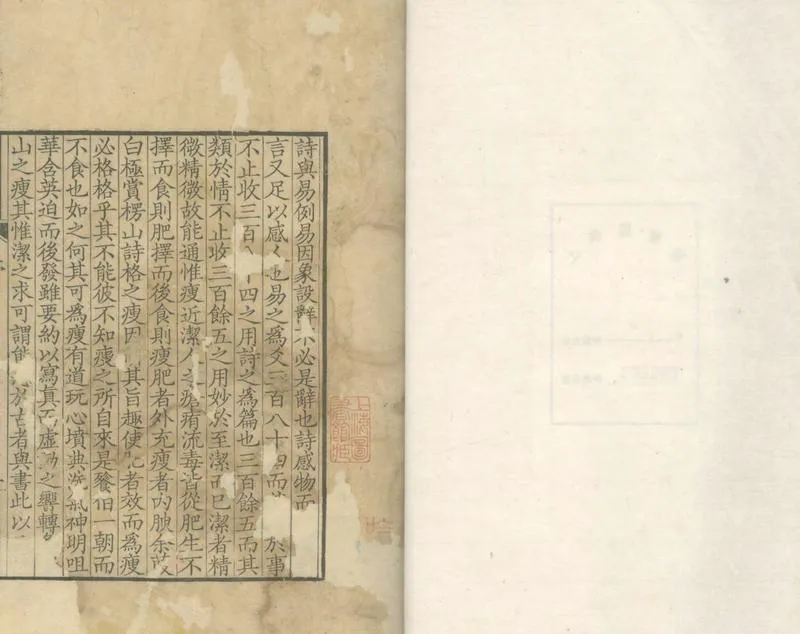 詩與易例易因象設辭不必是辭也詩感物而
言又足以感人也易之為爻三百八十四而 於事
不止收三百八十四之用詩之為篇也三百餘五而其
類於情不止收三百餘五之用妙於至潔而已潔者精
微精微故能通惟瘦近潔人之瘡痏流毒皆從肥生不
擇而食則肥擇而後食則瘦肥者外充瘦者內腴余
白極賞楞山詩格之瘦因其旨趣使肥者效而為瘦
必格格乎其不能彼不知瘦之所自來是餐 一朝而
不食也如之何其可為瘦有道玩心墳典 神明咀
華含英迫而後發雖要約以寫真而虛 之響轉
山之瘦其惟潔之求可謂能 於古者與書此以
上海圖書館藏